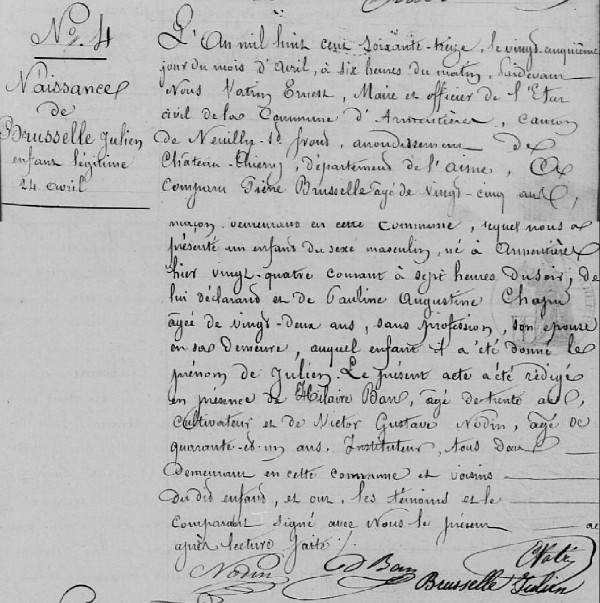 N° 4
Naissance
de
Brusselle Julien
enfant légitime
24 avril
L'An mil huit cent soixante-treize, le vingt-cinquième
jour du mois d'Avril, à six heures du matin, Pardevant
Nous Vatrin Ernest, Maire et officier de l'Etat
civil de la Commune d'Armentières, canton
de Neuilly-St front, arrondissement de
Château-Thierry, département de l'aisne, a
Comparu Pierre Brusselle agé de vingt-cinq ans,
maçon demeurant en cette Commune, lequel nous a
présenté un enfant du sexe masculin, né à Armentières
hier vingt-quatre courant à sept heures du soir, de
lui déclarand et de Pauline Augustine
agée de vingt-deux ans, sans profession, son épouse
en sa demeure, auquel enfant il a été donné le
prénom de Julien. Le présent acte a été rédigé
en présence de Hilaire Ban, agé de trente ans,
cultivateur et de Victor Gustave Nodin, agé de
quarante-et-un ans, Instituteur, tous deux
demeurant en cette commune et voisins
du dit enfant, et ont, les témoins et le
Comparant signé avec Nous le présent acte
après lecture faite ./.
Nodin Ban
Brusselle Julien